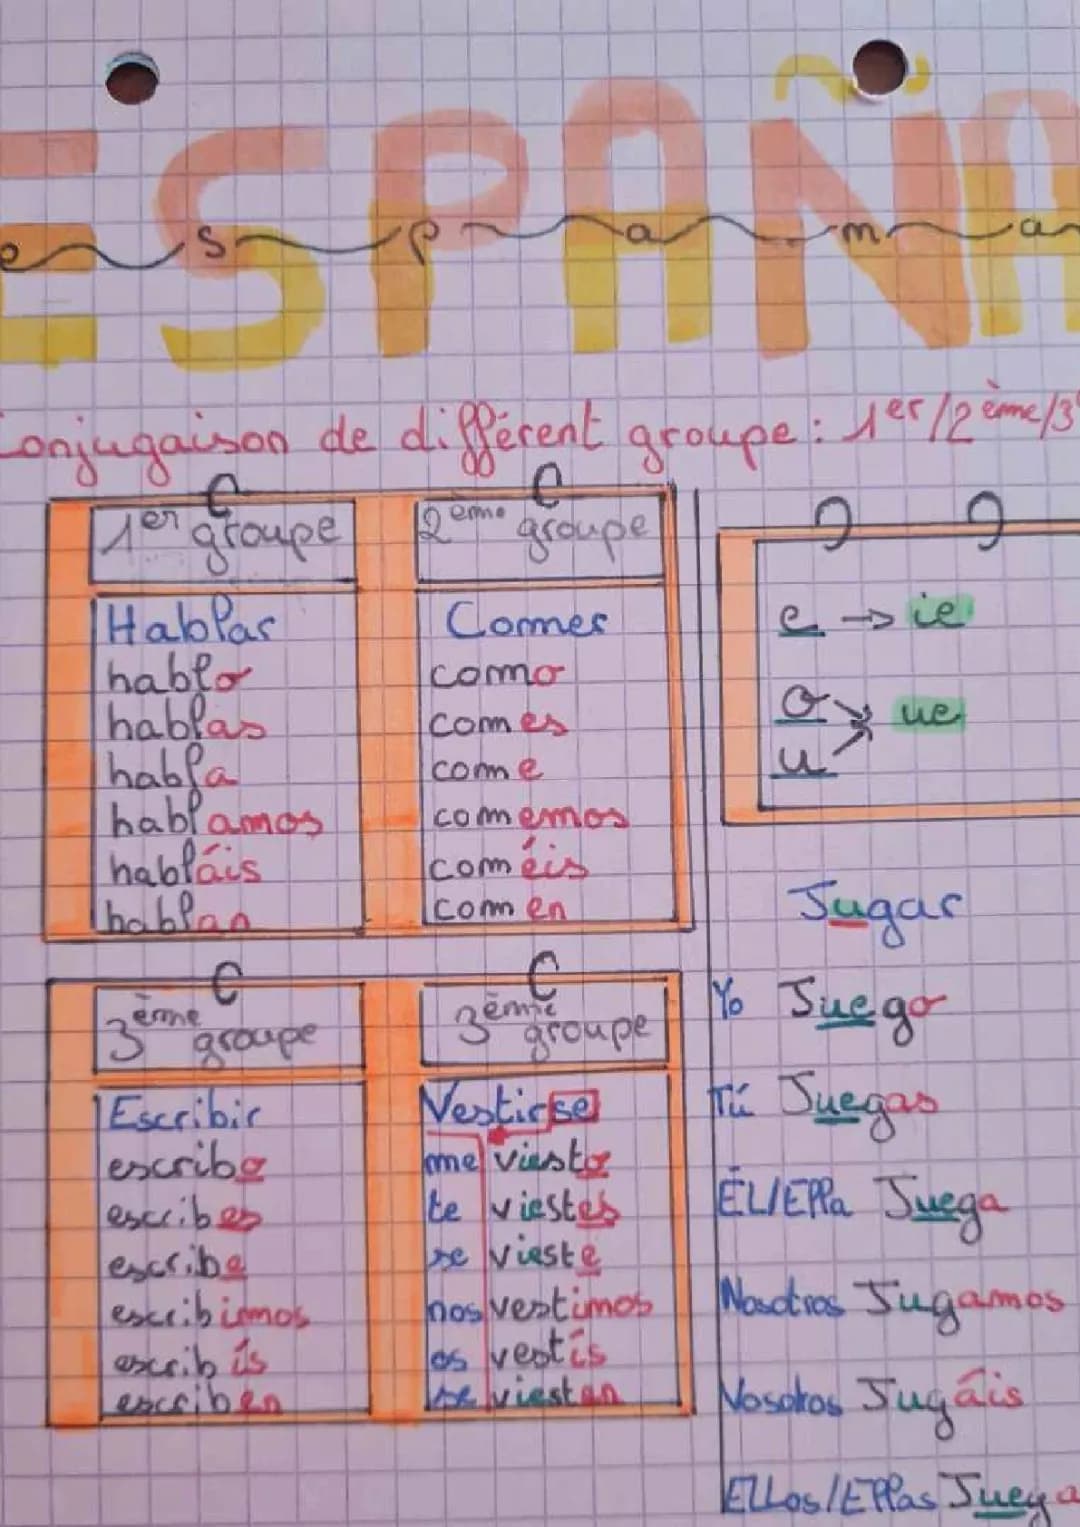 ESPAÑA
espama
Conjugaison de différent groupe : 1er/2ème/3
1er groupe
Hablar
hablo
hablas
habla
hablamos
habláis
hablan
2ème groupe
Comer
como
comes
come
comemos
coméis
comen
3ème groupe
Escribir
escribo
escribes
escribe
escribimos
escribís
escriben
3ème groupe
Vestirse
me viesto
te viestes
se vieste
nos vestimos
os vestís
se viesten
e → ie
o → ue
u
Jugar
Yo Juego
Tú Juegas
ÉL/Ella Juega
Nosotros Jugamos
Vosotros Jugáis
ELLos/Ellas Juega